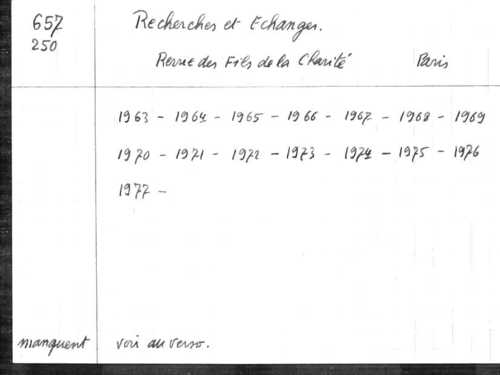 657 Recherches et Echanges.
250
Revue des Fils de la Charité Paris
1963 - 1964 - 1965 - 1966 - 1967 - 1968 - 1969
1970 - 1971 - 1972 - 1973 - 1974 - 1975 - 1976
1977 -
manquent voir au verso.